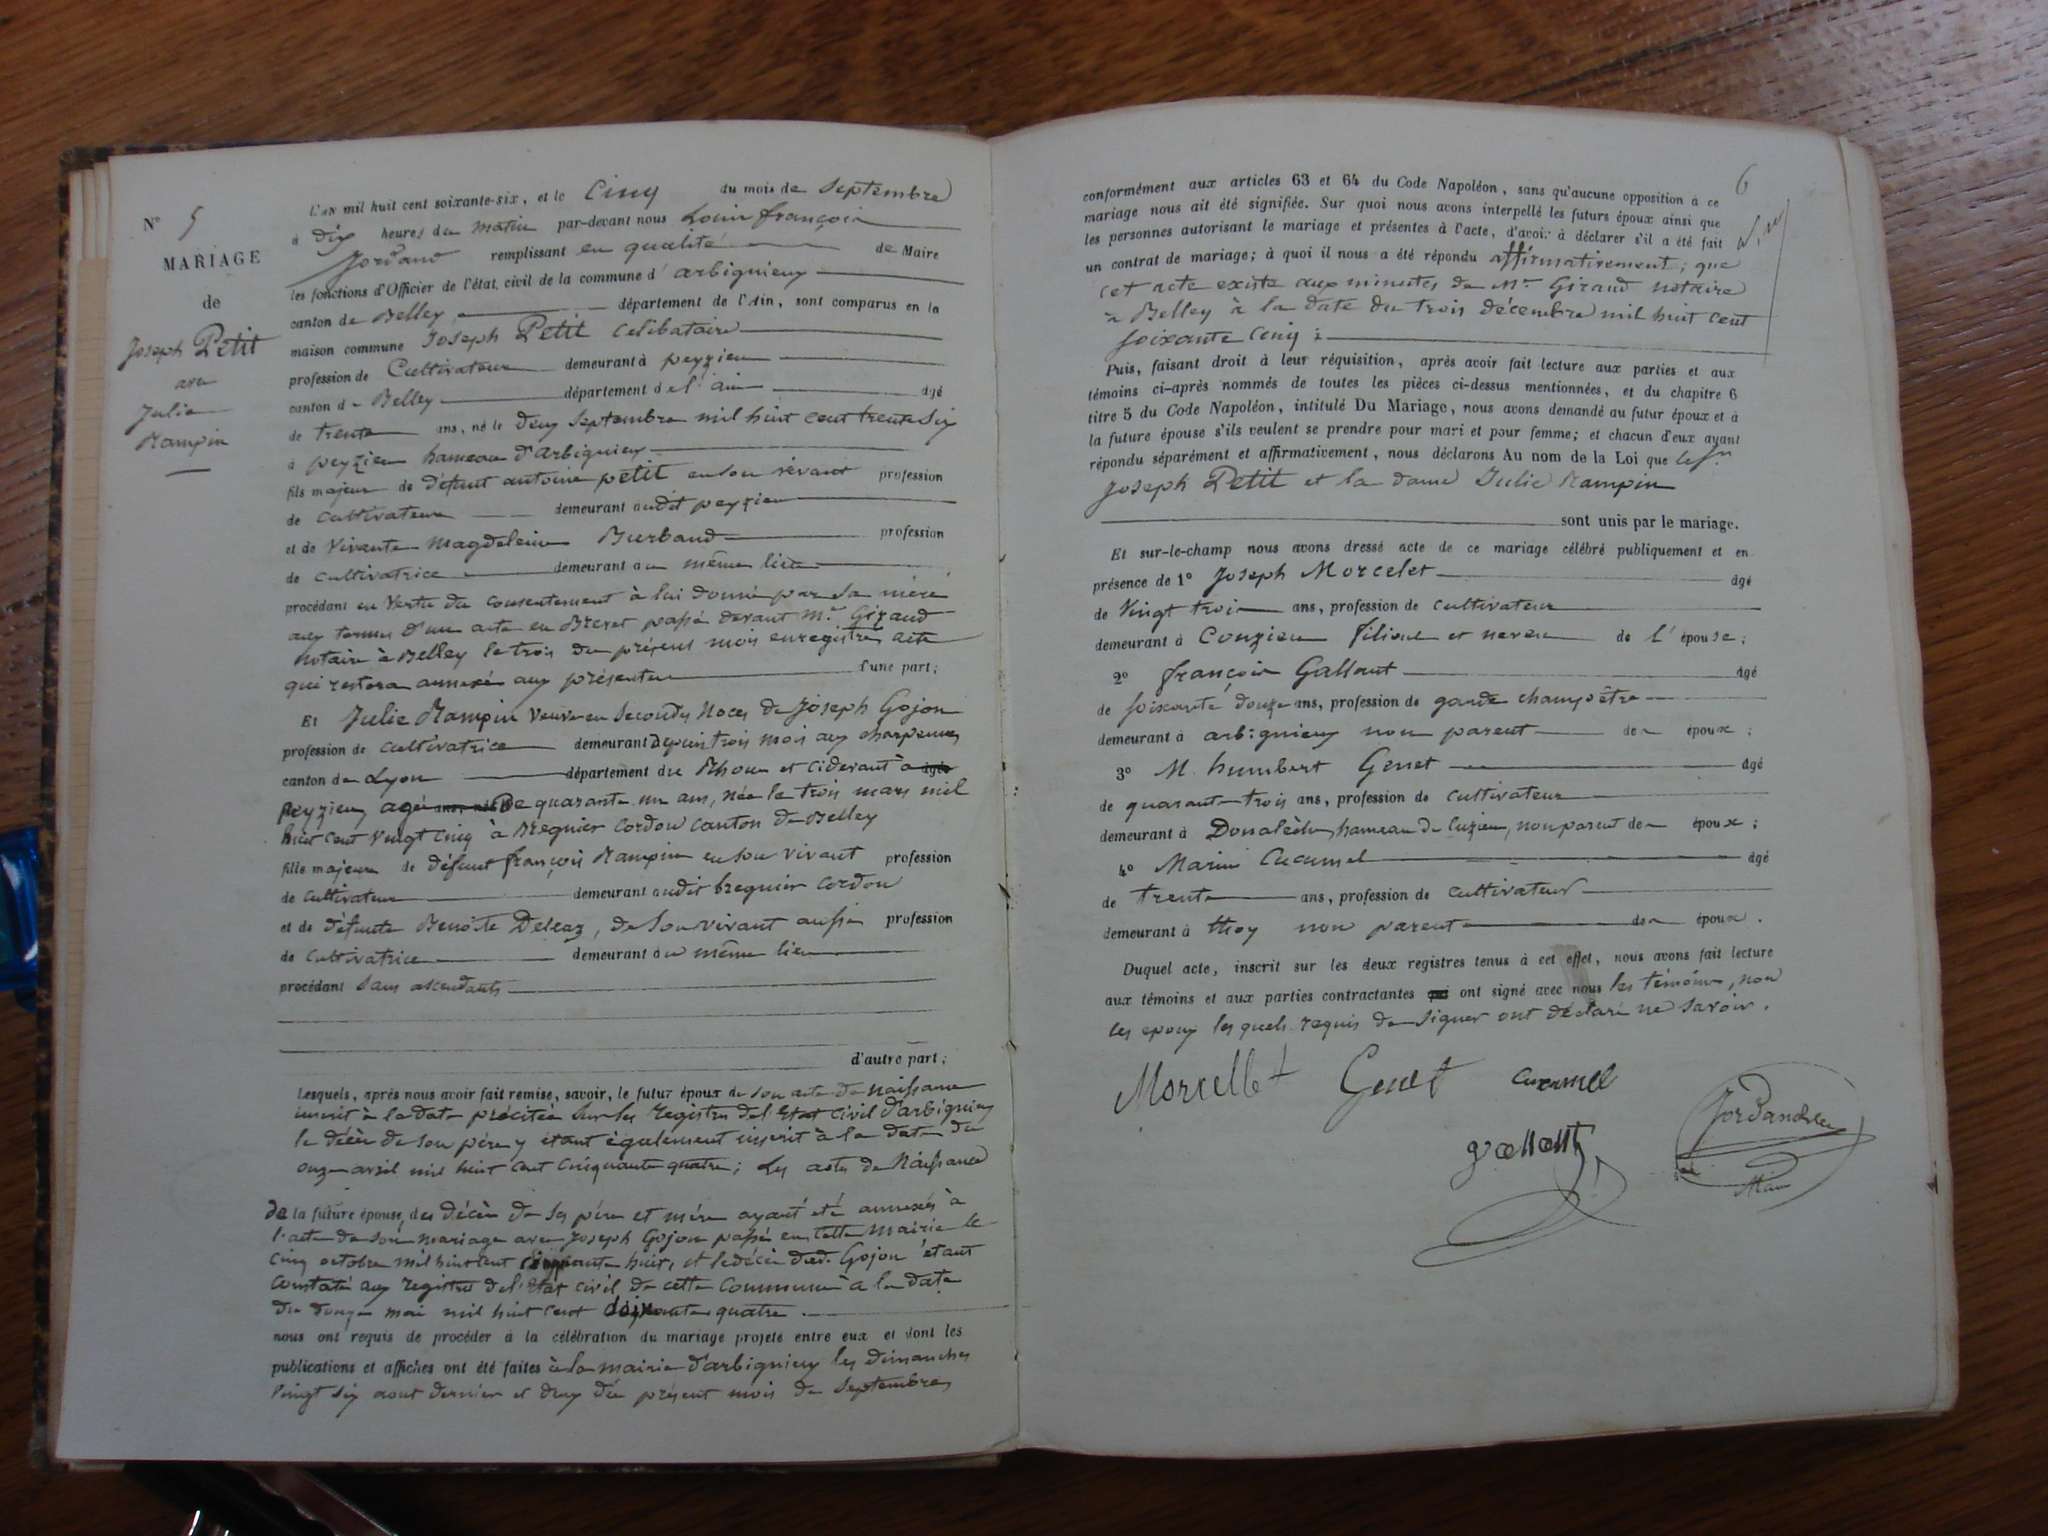 N° 5
MARIAGE
de
Joseph Petit
avec
Julie
Rampin
L'AN mil huit cent soixante-six, et le Cinq du mois de Septembre
à Dix heures du matin par-devant nous Louis françois
Jordand remplissant en qualité de Maire
les fonctions d'Officier de l'état civil de la commune d'arbignieux
canton de Belley département de l'Ain, sont comparus en la
maison commune Joseph Petit Célibataire
profession de Cultivateur demeurant à peyzieu
canton de Belley département de l'ain âgé
de trente ans, né le deux Septembre mil huit cent trente six
à peyzieu hameau d'arbignieux
fils majeur de défunt antoine petit en son vivant profession
de Cultivateur demeurant audit peyzieu
et de Vivante Magdeleine Burbaud profession
de Cultivatrice demeurant au même lieu
procédant en vertu du consentement à lui donné par sa mère
aux termes d'un acte en Brevet passé devant Mr Giraud
notaire à Belley le trois du présent mois enregistré, acte
qui restera annexé aux présentes l'une part;
Et Julie Rampin veuve en secondes Noces de Joseph Gojon
profession de cultivatrice demeurant depuis trois mois aux charpennes
canton de Lyon département du Rhone et cidevant à âgée
peyzieu, agée ans, née de quarante un ans, née le trois mars mil
huit cent vingt cinq à Bregnier Cordon canton de Belley
fille majeure de défunt françois Rampin en son vivant profession
de Cultivateur demeurant audit bregnier cordon
et de défunte Benoîte Deleaz, de son vivant aussi profession
de Cultivatrice demeurant au même lieu
procédant Sans ascendants
d'autre part;
Lesquels, après nous avoir fait remise, savoir, le futur époux de son acte de naissance
inscrit à la date précitée sur les registres de l'Etat civil d'arbignieu
le décès de son père y étant également inscrit à la date du
onze avril mil huit cent cinquante quatre; Les actes de Naissance
de la future épouse, des décès de ses père et mère ayant été annexés à
l'acte de son mariage avec Joseph Gojon passé en cette mairie le
cinq octobre mil huit cent cinquante huit, et le décès dud. Gojon étant
constaté aux registres de l'état civil de cette commune à la date
du douze mai mil huit cent soixante quatre.
nous ont requis de procéder à la célébration du mariage projeté entre eux et dont les
publications et affiches ont été faites à la mairie d'arbignieux les dimanches
vingt six aout dernier et deux du présent mois de Septembre
6
conformément aux articles 63 et 64 du Code Napoléon, sans qu'aucune opposition à ce
mariage nous ait été signifiée. Sur quoi nous avons interpellé les futurs époux ainsi que
les personnes autorisant le mariage et présentes à l'acte, d'avoir à déclarer s'il a été fait
un contrat de mariage; à quoi il nous a été répondu affirmativement; que
cet acte existe aux minutes de Mr Giraud notaire
à Belley à la date du trois décembre mil huit cent
soixante cinq
Puis, faisant droit à leur réquisition, après avoir fait lecture aux parties et aux
témoins ci-après nommés de toutes les pièces ci-dessus mentionnées, et du chapitre 6
titre 5 du Code Napoléon, intitulé Du Mariage, nous avons demandé au futur époux et à
la future épouse s'ils veulent se prendre pour mari et pour femme; et chacun d'eux ayant
répondu séparément et affirmativement, nous déclarons Au nom de la Loi que le Sr
Joseph Petit et la dame Julie Rampin
sont unis par le mariage.
Et sur-le-champ nous avons dressé acte de ce mariage célébré publiquement et en
présence de 1° Joseph Morcelet âgé
de Vingt trois ans, profession de cultivateur
demeurant à Conzieu filieul et neveu de l'épouse;
2° françois Gallant âgé
de soixante douze ans, profession de garde champêtre
demeurant à arbignieux non parent des époux;
3° M. humbert Genet âgé
de quarante trois ans, profession de cultivateur
demeurant à hameau de Cuzieu, non parent des époux;
4° Marin Cucumel âgé
de trente ans, profession de cultivateur
demeurant à thoy non parent des époux.
Duquel acte, inscrit sur les deux registres tenus à cet effet, nous avons fait lecture
aux témoins et aux parties contractantes qui ont signé avec nous les témoins, non
les epoux lesquels requis de signer ont déclaré ne savoir.
Morcellet Genet Cucumel
gallant
Jordand
Maire